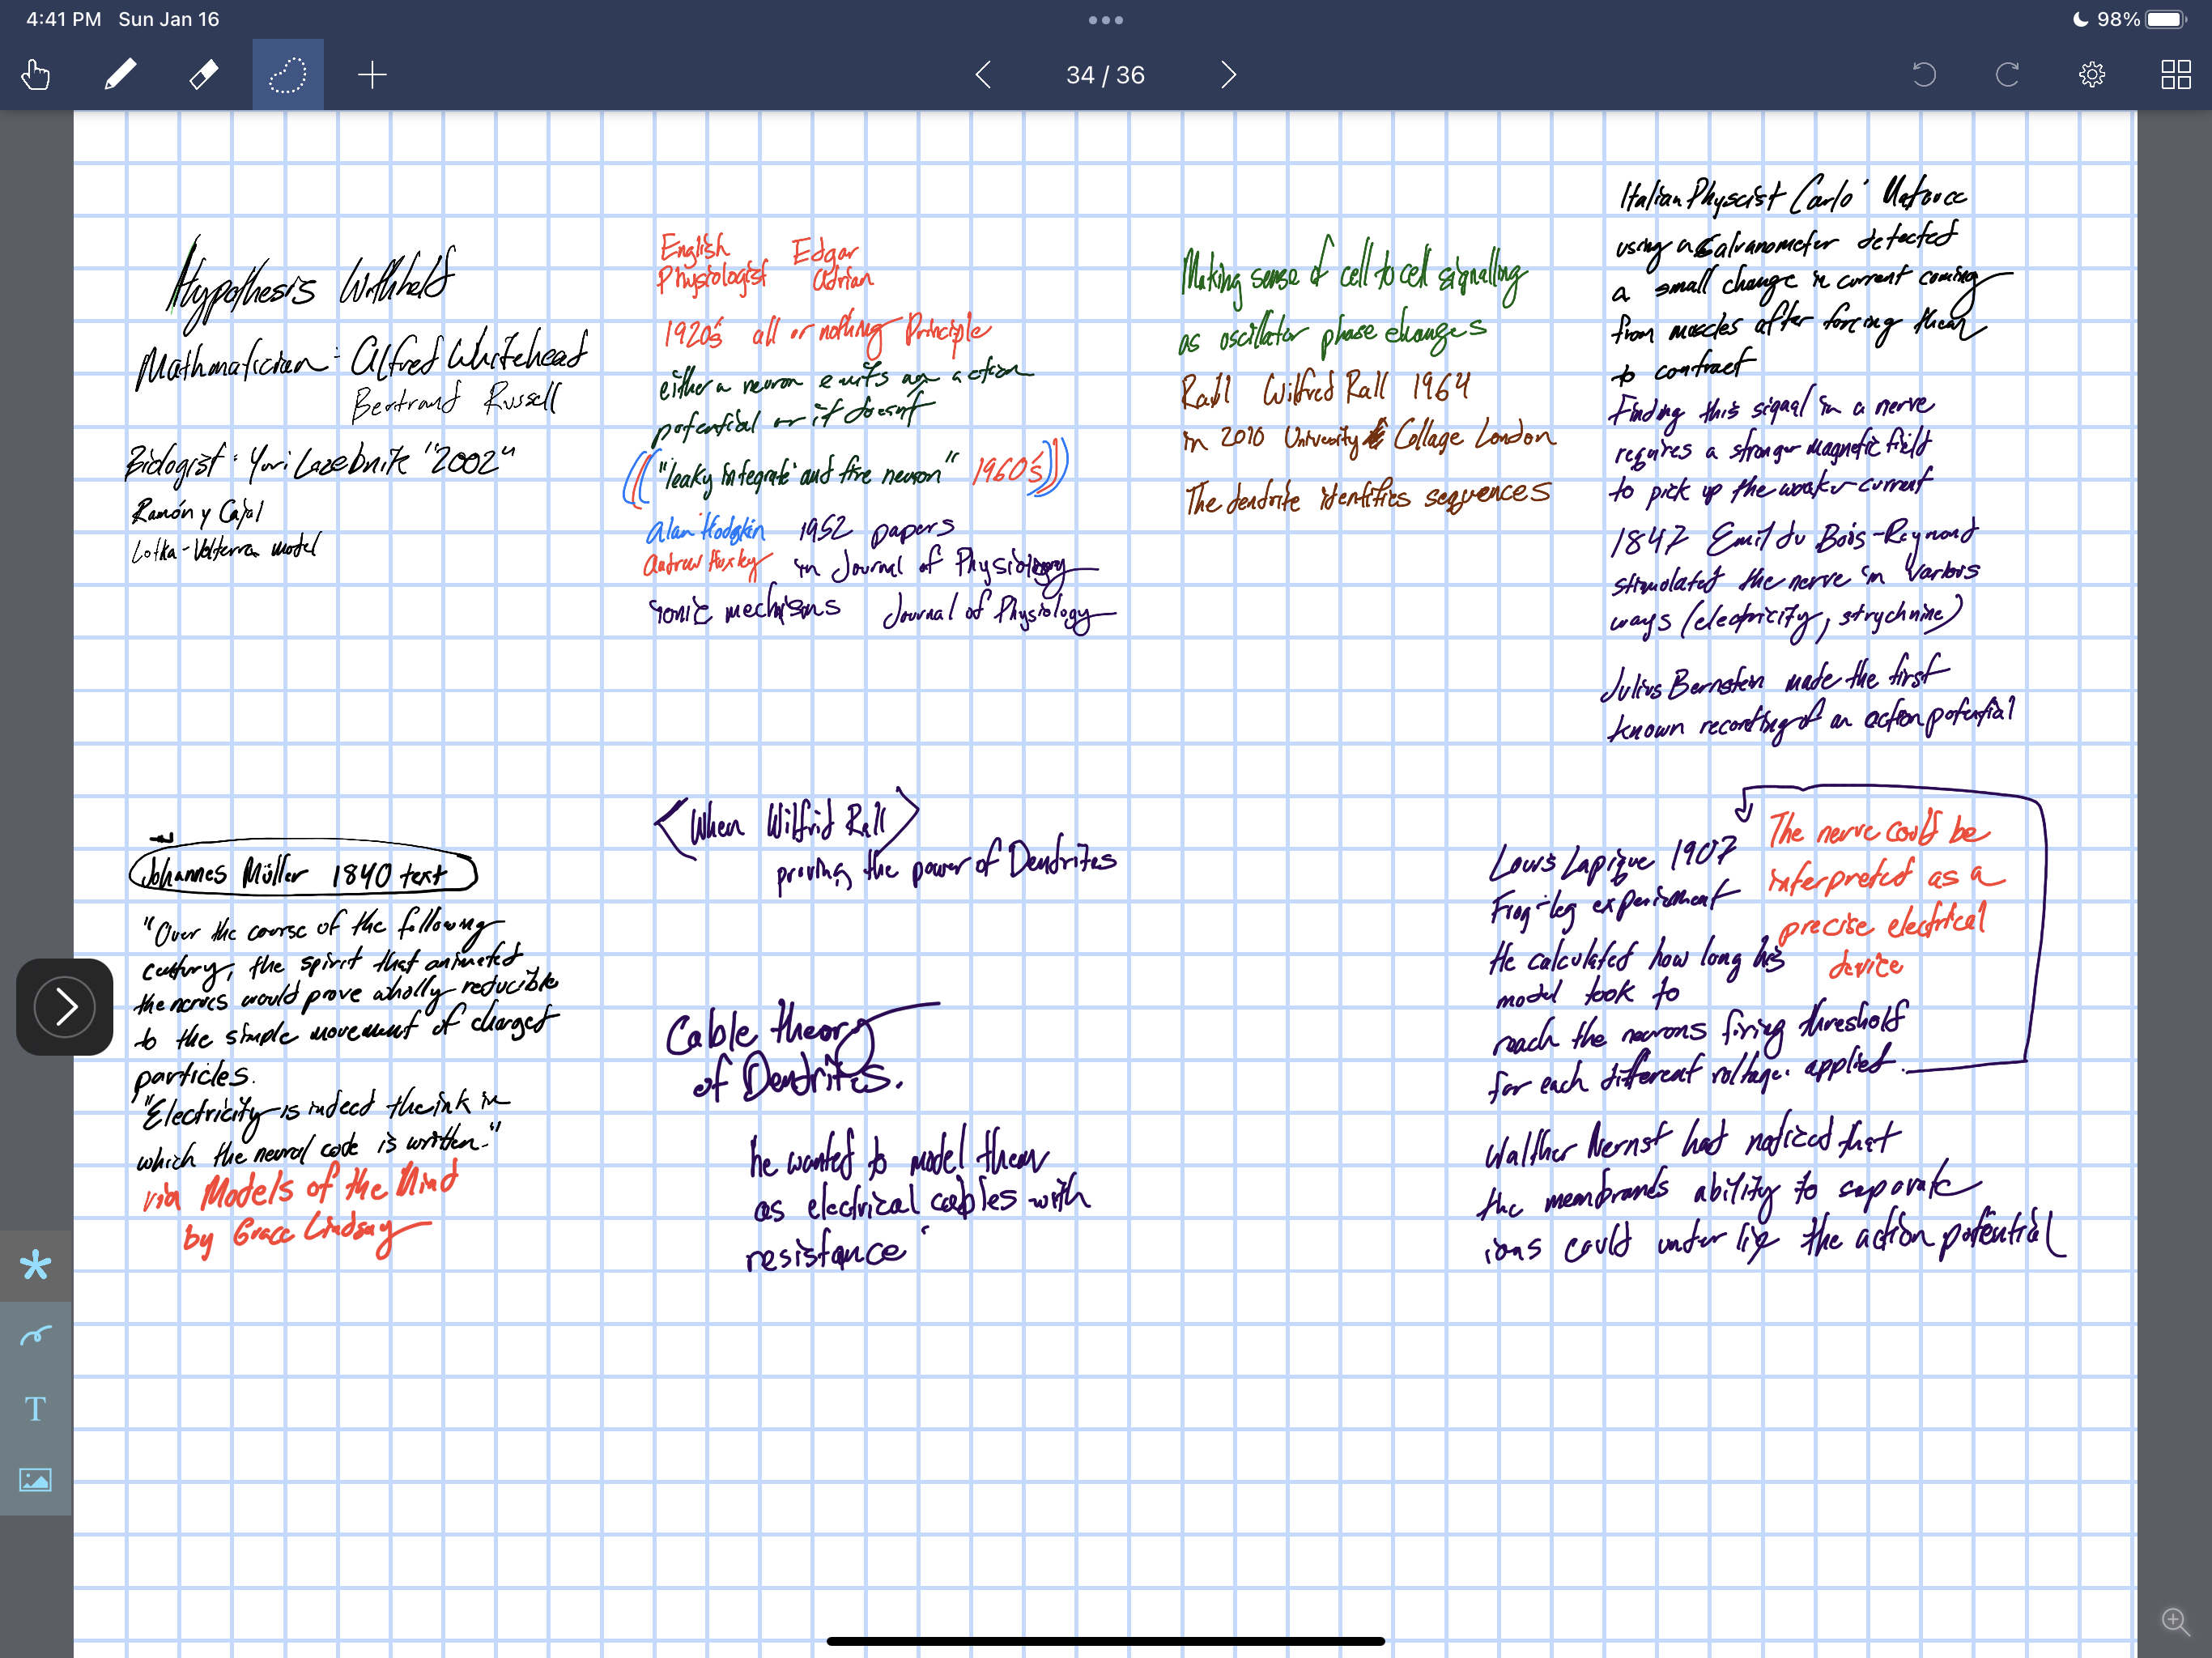 4:41 PM Sun Jan 16
98%
34 / 36
Hypothesis Withheld
Mathmatician: Alfred Whitehead
Bertrand Russell
Biologist: Yuri Lazebnik "2002"
Ramón y Cajal
Lotka-Volterra model
English Edgar
Physiologist Adrian
1920's all or nothing Principle
either a neuron emits an action
potential or it doesnt
"leaky integrate and fire neuron" 1960's
Alan Hodgkin 1952 papers
Andrew Huxley in Journal of Physiology
ionic mechisms Journal of Physiology
Making sense of cell to cell signalling
as oscillator phase changes
Rall Wilfred Rall 1964
in 2010 University Collage London
The dendrite identifies sequences
Italian Physcist Carlo
using a Galvanometer detected
a small change in current coming
from muscles after forcing them
to contract
Finding this signal in a nerve
requires a stronger magnetic field
to pick up the weaker current
1847 Emil du Bois-Reymond
stimulated the nerve in various
ways (electricity, strychnine)
Julius Bernstein made the first
known recording of an action potential
Johannes Müller 1840 text
"Over the course of the following
century, the spirit that animated
the nerves would prove wholly reducible
to the simple movement of charged
particles.
"Electricity is indeed the ink in
which the neural code is written."
via Models of the Mind
by Grace Lindsay
When Wilfrid Rall
proving the power of Dendrites
Cable theory
of Dendrites.
he wanted to model them
as electrical cables with
resistance
Louis Lapique 1907
Frog-leg experiment
He calculated how long his
model took to
reach the neurons firing threshold
for each different voltage applied.
The nerve could be
interpreted as a
precise electrical
device
Walther Nernst had noticed that
the membranes ability to separate
ions could under lie the action potential
T